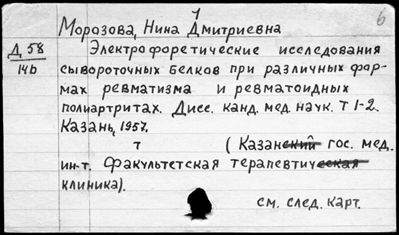 1
6
Морозова, Нина Дмитриевна
Д 58
14b
Электрофоретические исследования
сывороточных белков при различных фор-
мах ревматизма и ревматоидных
полиартритах. Дисс. канд. мед. наук. Т 1-2.
Казань, 1957.
т (Казанский гос. мед.
ин-т. Факультетская терапевтическая
клиника).
см. след. карт.